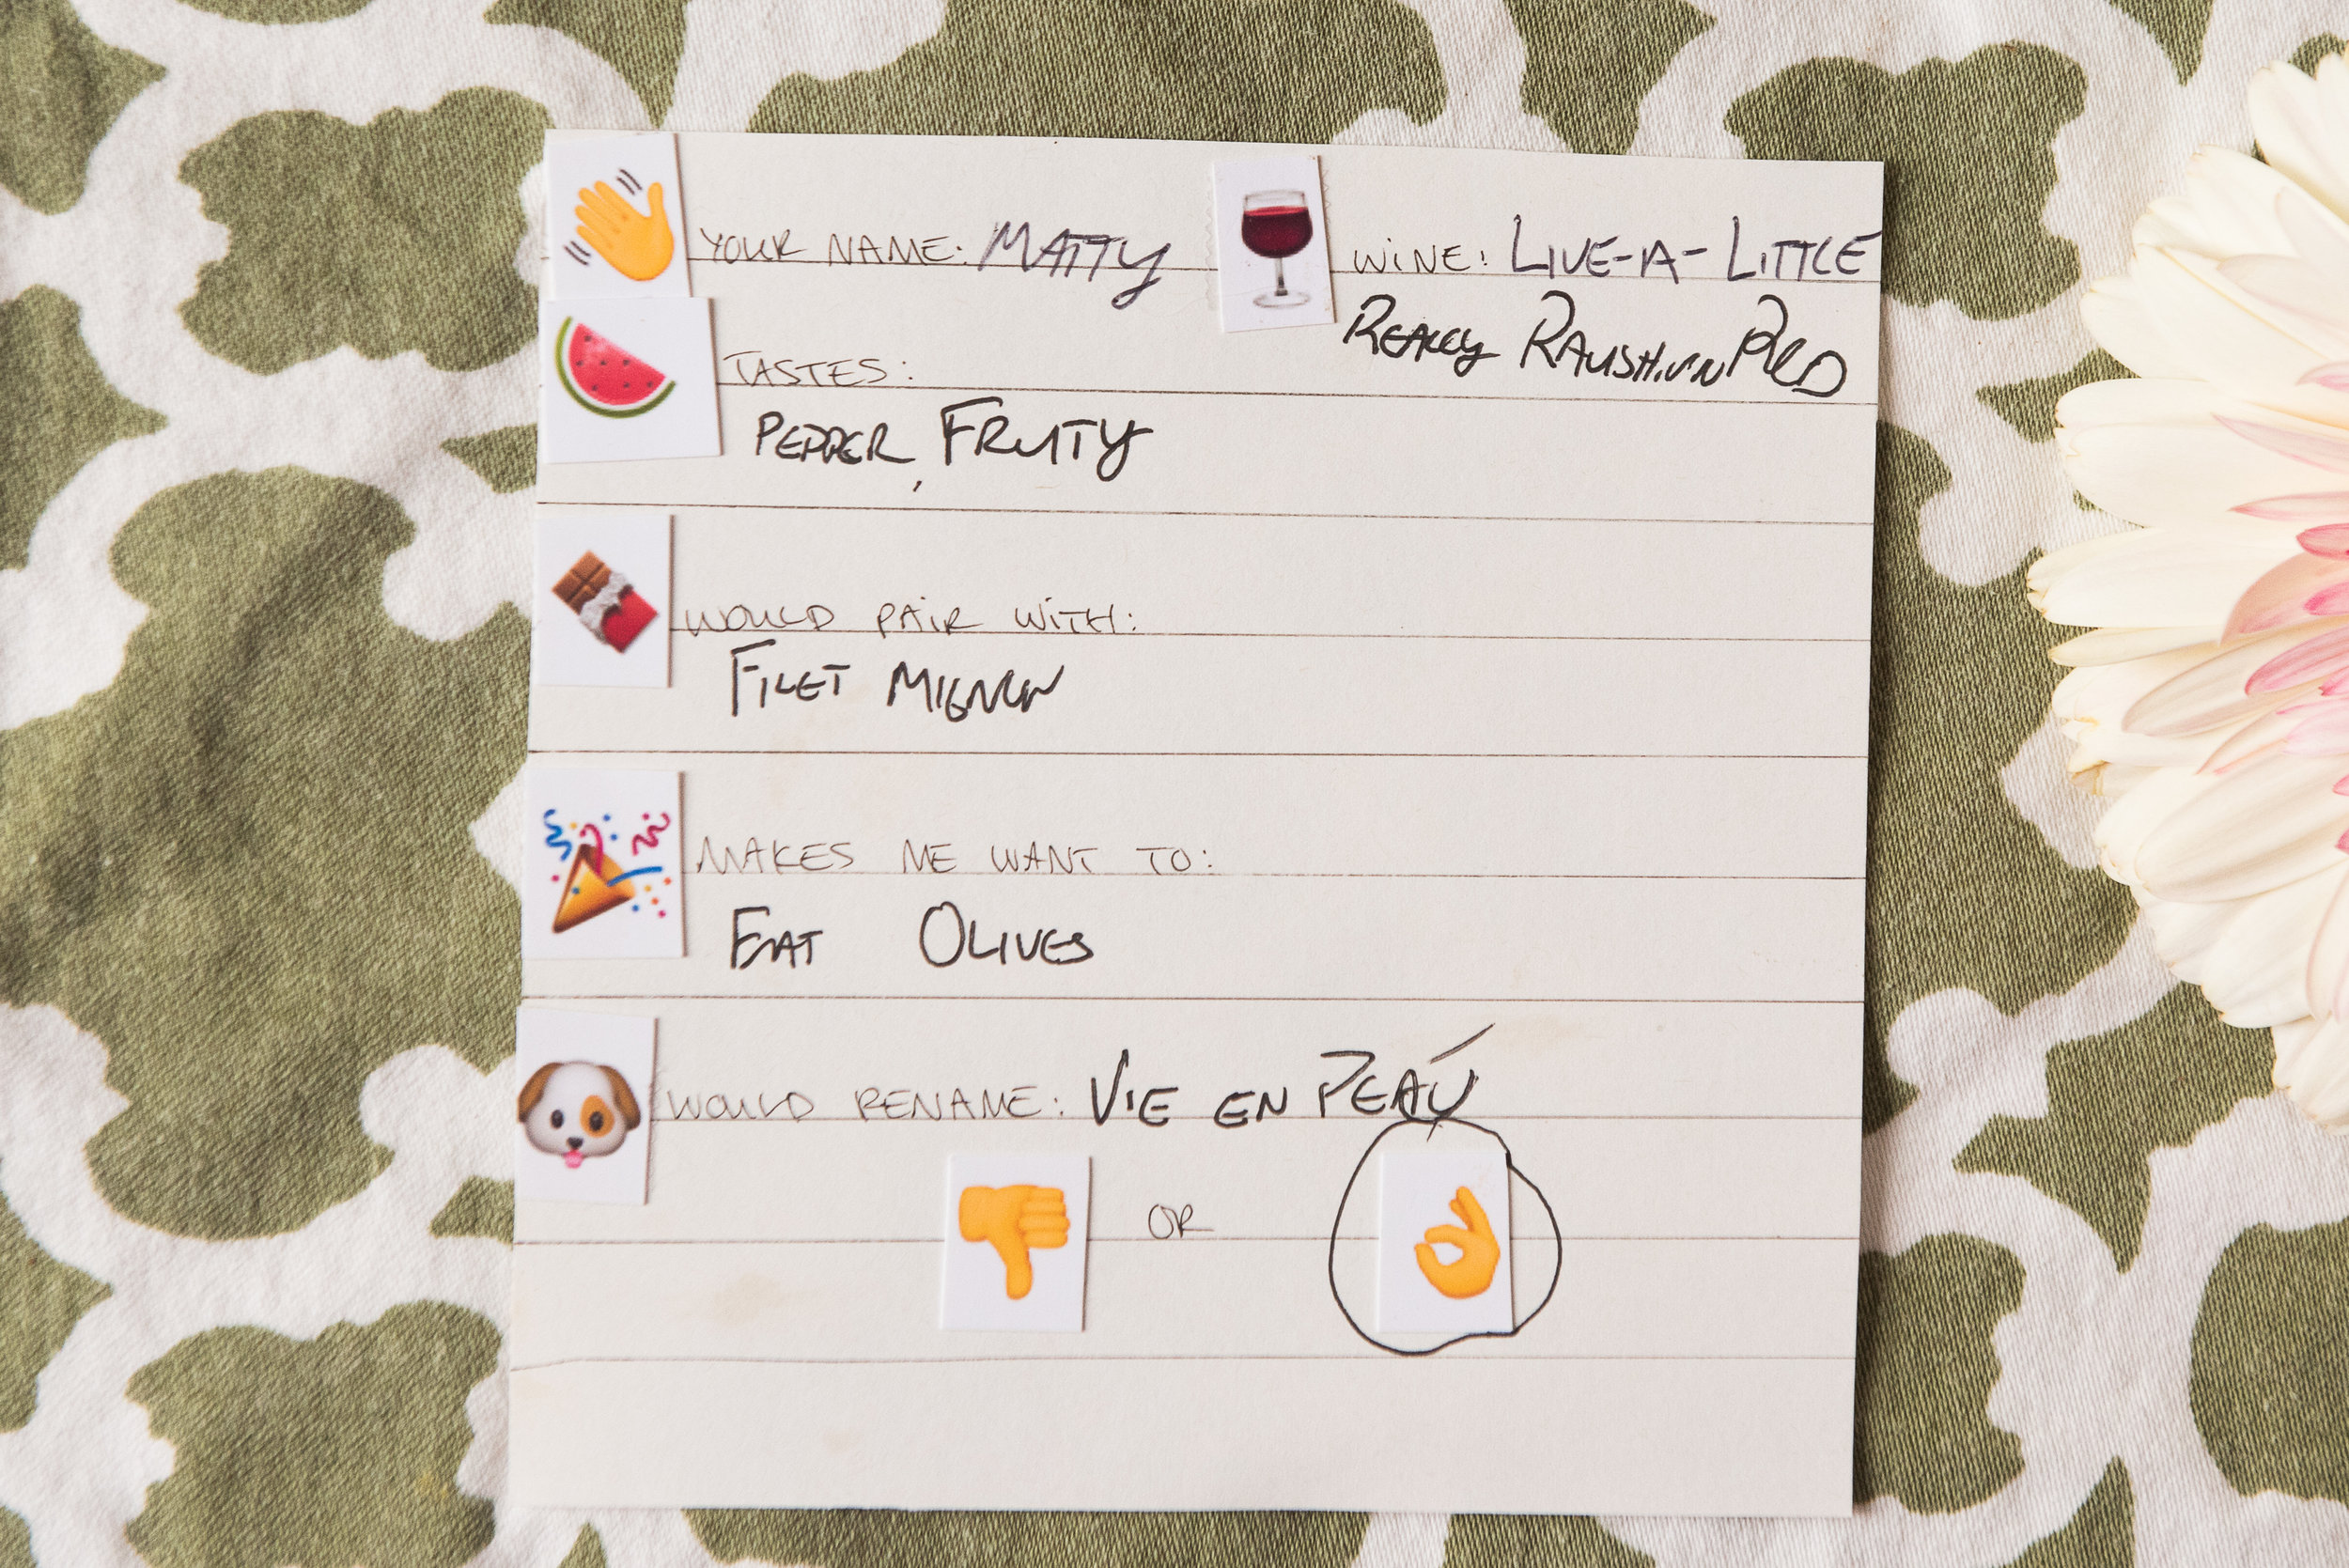 YOUR NAME: MATTY
WINE: LIVE-A-LITTLE
REALLY RAVISHIN RED
TASTES:
PEPPER, FRUITY
WOULD PAIR WITH:
FILET MIGNON
MAKES ME WANT TO:
EAT OLIVES
WOULD RENAME: VIE EN PEAÚ
OR